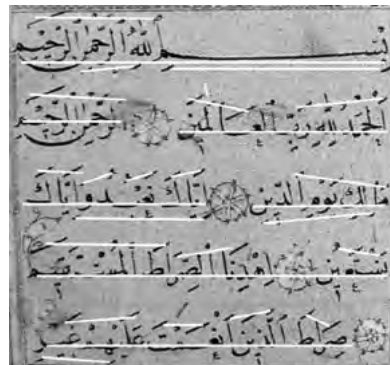 بِسْمِ اللَّهِ الرَّحْمَٰنِ الرَّحِيمِ
الْحَمْدُ لِلَّهِ رَبِّ الْعَالَمِينَ الرَّحْمَٰنِ الرَّحِيمِ
مَالِكِ يَوْمِ الدِّينِ إِيَّاكَ نَعْبُدُ وَإِيَّاكَ
نَسْتَعِينُ اهْدِنَا الصِّرَاطَ الْمُسْتَقِيمَ
صِرَاطَ الَّذِينَ أَنْعَمْتَ عَلَيْهِمْ غَيْرِ